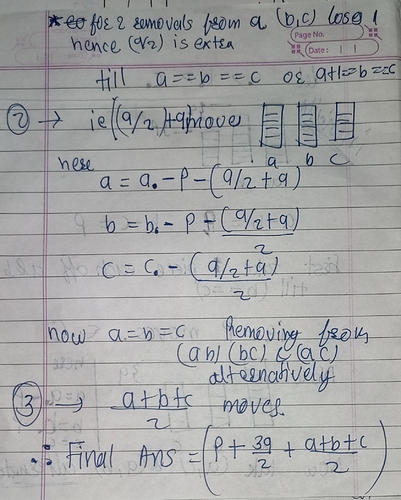 * for 2 removals from a (b,c) lose 1
Page No.
hence (q/2) is extra
Date:
till a==b==c or a+1==b==c
② → ie ((q/2)+q) move
a b c
here
a = a₀ - p - (q/2 + q)
b = b₀ - p - (q/2+q)/2
c = c₀ - (q/2+q)/2
now a=b=c Removing from
(ab) (bc) & (ac)
alternatively
③ → (a+b+c)/2 moves
∴ Final Ans = (p + 3q/2 + (a+b+c)/2)